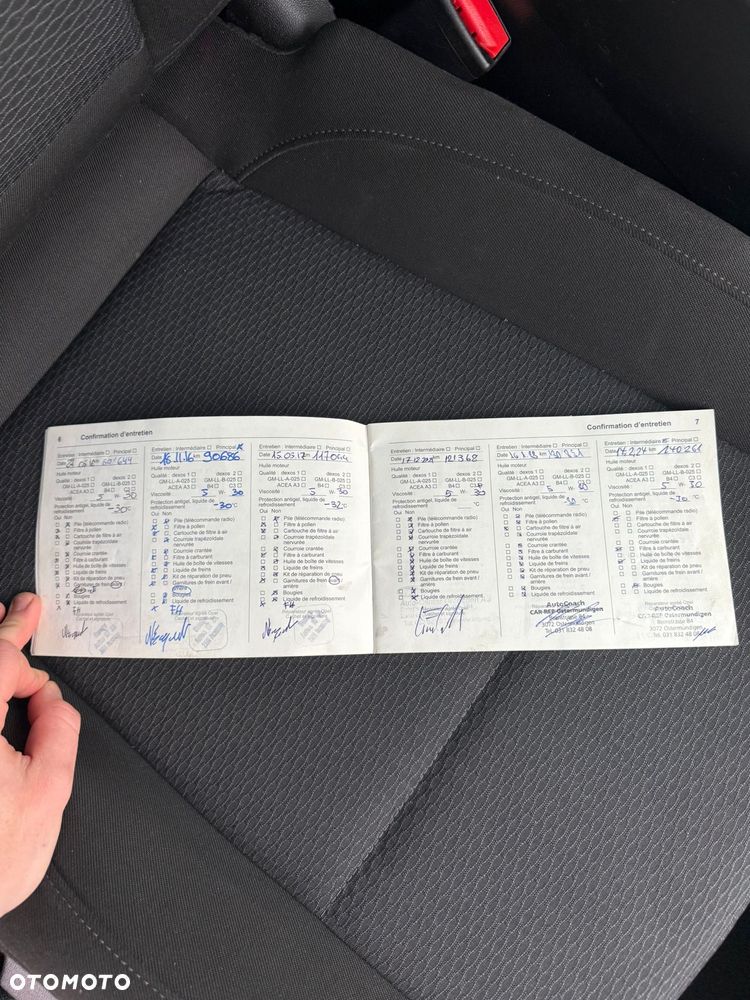 6 Confirmation d'entretien
Entretien : Intermédiaire Principal
Date km
Huile moteur
Qualité : dexos 1 dexos 2
GM-LL-A-025 GM-LL-B-025
ACEA A3 B4 C3
Viscosité 5 W- 30
Protection antigel, liquide de
refroidissement -30°C
Oui Non
Pile (télécommande radio)
Filtre à pollen
Cartouche de filtre à air
Courroie trapézoïdale
nervurée
Courroie crantée
Filtre à carburant
Huile de boîte de vitesses
Liquide de freins
Kit de réparation de pneu
Garnitures de frein
Bougies
Liquide de refroidissement
FH
Entretien : Intermédiaire Principal
Date 16.11.16 km 90686
Huile moteur
Qualité : dexos 1 dexos 2
GM-LL-A-025 GM-LL-B-025
ACEA A3 B4 C3
Viscosité 5 W- 30
Protection antigel, liquide de
refroidissement -30°C
Oui Non
Pile (télécommande radio)
Filtre à pollen
Cartouche de filtre à air
Courroie trapézoïdale
nervurée
Courroie crantée
Filtre à carburant
Huile de boîte de vitesses
Liquide de freins
Kit de réparation de pneu
Garnitures de frein avant /
arrière
Bougies
Liquide de refroidissement
FH
Entretien : Intermédiaire Principal
Date 15.05.17
Huile moteur
Qualité : dexos 1 dexos 2
GM-LL-A-025 GM-LL-B-025
ACEA A3 B4 C3
Viscosité 5 W- 30
Protection antigel, liquide de
refroidissement -32°C
Oui Non
Pile (télécommande radio)
Filtre à pollen
Cartouche de filtre à air
Courroie trapézoïdale
nervurée
Courroie crantée
Filtre à carburant
Huile de boîte de vitesses
Liquide de freins
Kit de réparation de pneu
Garnitures de frein avant /
arrière
Bougies
Liquide de refroidissement
FH
Confirmation d'entretien 7
Entretien : Intermédiaire Principal
Date
Huile moteur
Qualité : dexos 1 dexos 2
GM-LL-A-025 GM-LL-B-025
ACEA A3 B4 C3
Viscosité 5 W- 30
Protection antigel, liquide de
refroidissement °C
Oui Non
Pile (télécommande radio)
Filtre à pollen
Cartouche de filtre à air
Courroie trapézoïdale
nervurée
Courroie crantée
Filtre à carburant
Huile de boîte de vitesses
Liquide de freins
Kit de réparation de pneu
Garnitures de frein avant /
arrière
Bougies
Liquide de refroidissement
Entretien : Intermédiaire Principal
Date km
Huile moteur
Qualité : dexos 1 dexos 2
GM-LL-A-025 GM-LL-B-025
ACEA A3 B4 C3
Viscosité 5 W-
Protection antigel, liquide de
refroidissement °C
Oui Non
Pile (télécommande radio)
Filtre à pollen
Cartouche de filtre à air
Courroie trapézoïdale
nervurée
Courroie crantée
Filtre à carburant
Huile de boîte de vitesses
Liquide de freins
Kit de réparation de pneu
Garnitures de frein avant /
arrière
Bougies
Liquide de refroidissement
AutoCoach
CAR-REP Ostermundigen
3072 Ostermundigen
Tel. 031 832 48 08
Entretien : Intermédiaire Principal
Date 17.2.24 km 140261
Huile moteur
Qualité : dexos 1 dexos 2
GM-LL-A-025 GM-LL-B-025
ACEA A3 B4 C3
Viscosité 5 W- 30
Protection antigel, liquide de
refroidissement °C
Oui Non
Pile (télécommande radio)
Filtre à pollen
Cartouche de filtre à air
Courroie trapézoïdale
nervurée
Courroie crantée
Filtre à carburant
Huile de boîte de vitesses
Liquide de freins
Kit de réparation de pneu
Garnitures de frein avant /
arrière
Bougies
Liquide de refroidissement
AutoCoach
CAR-REP Ostermundigen
3072 Ostermundigen
Tel. 031 832 48 08
OTOMOTO